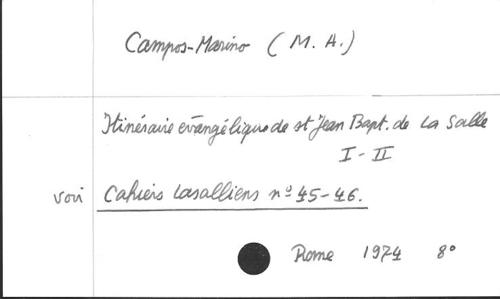 Campos-Marino (M. A.)
Itinéraire evangélique de st Jean Bapt. de La Salle
I-II
voir Cahiers lasalliens nº 45-46.
Rome 1974 8°